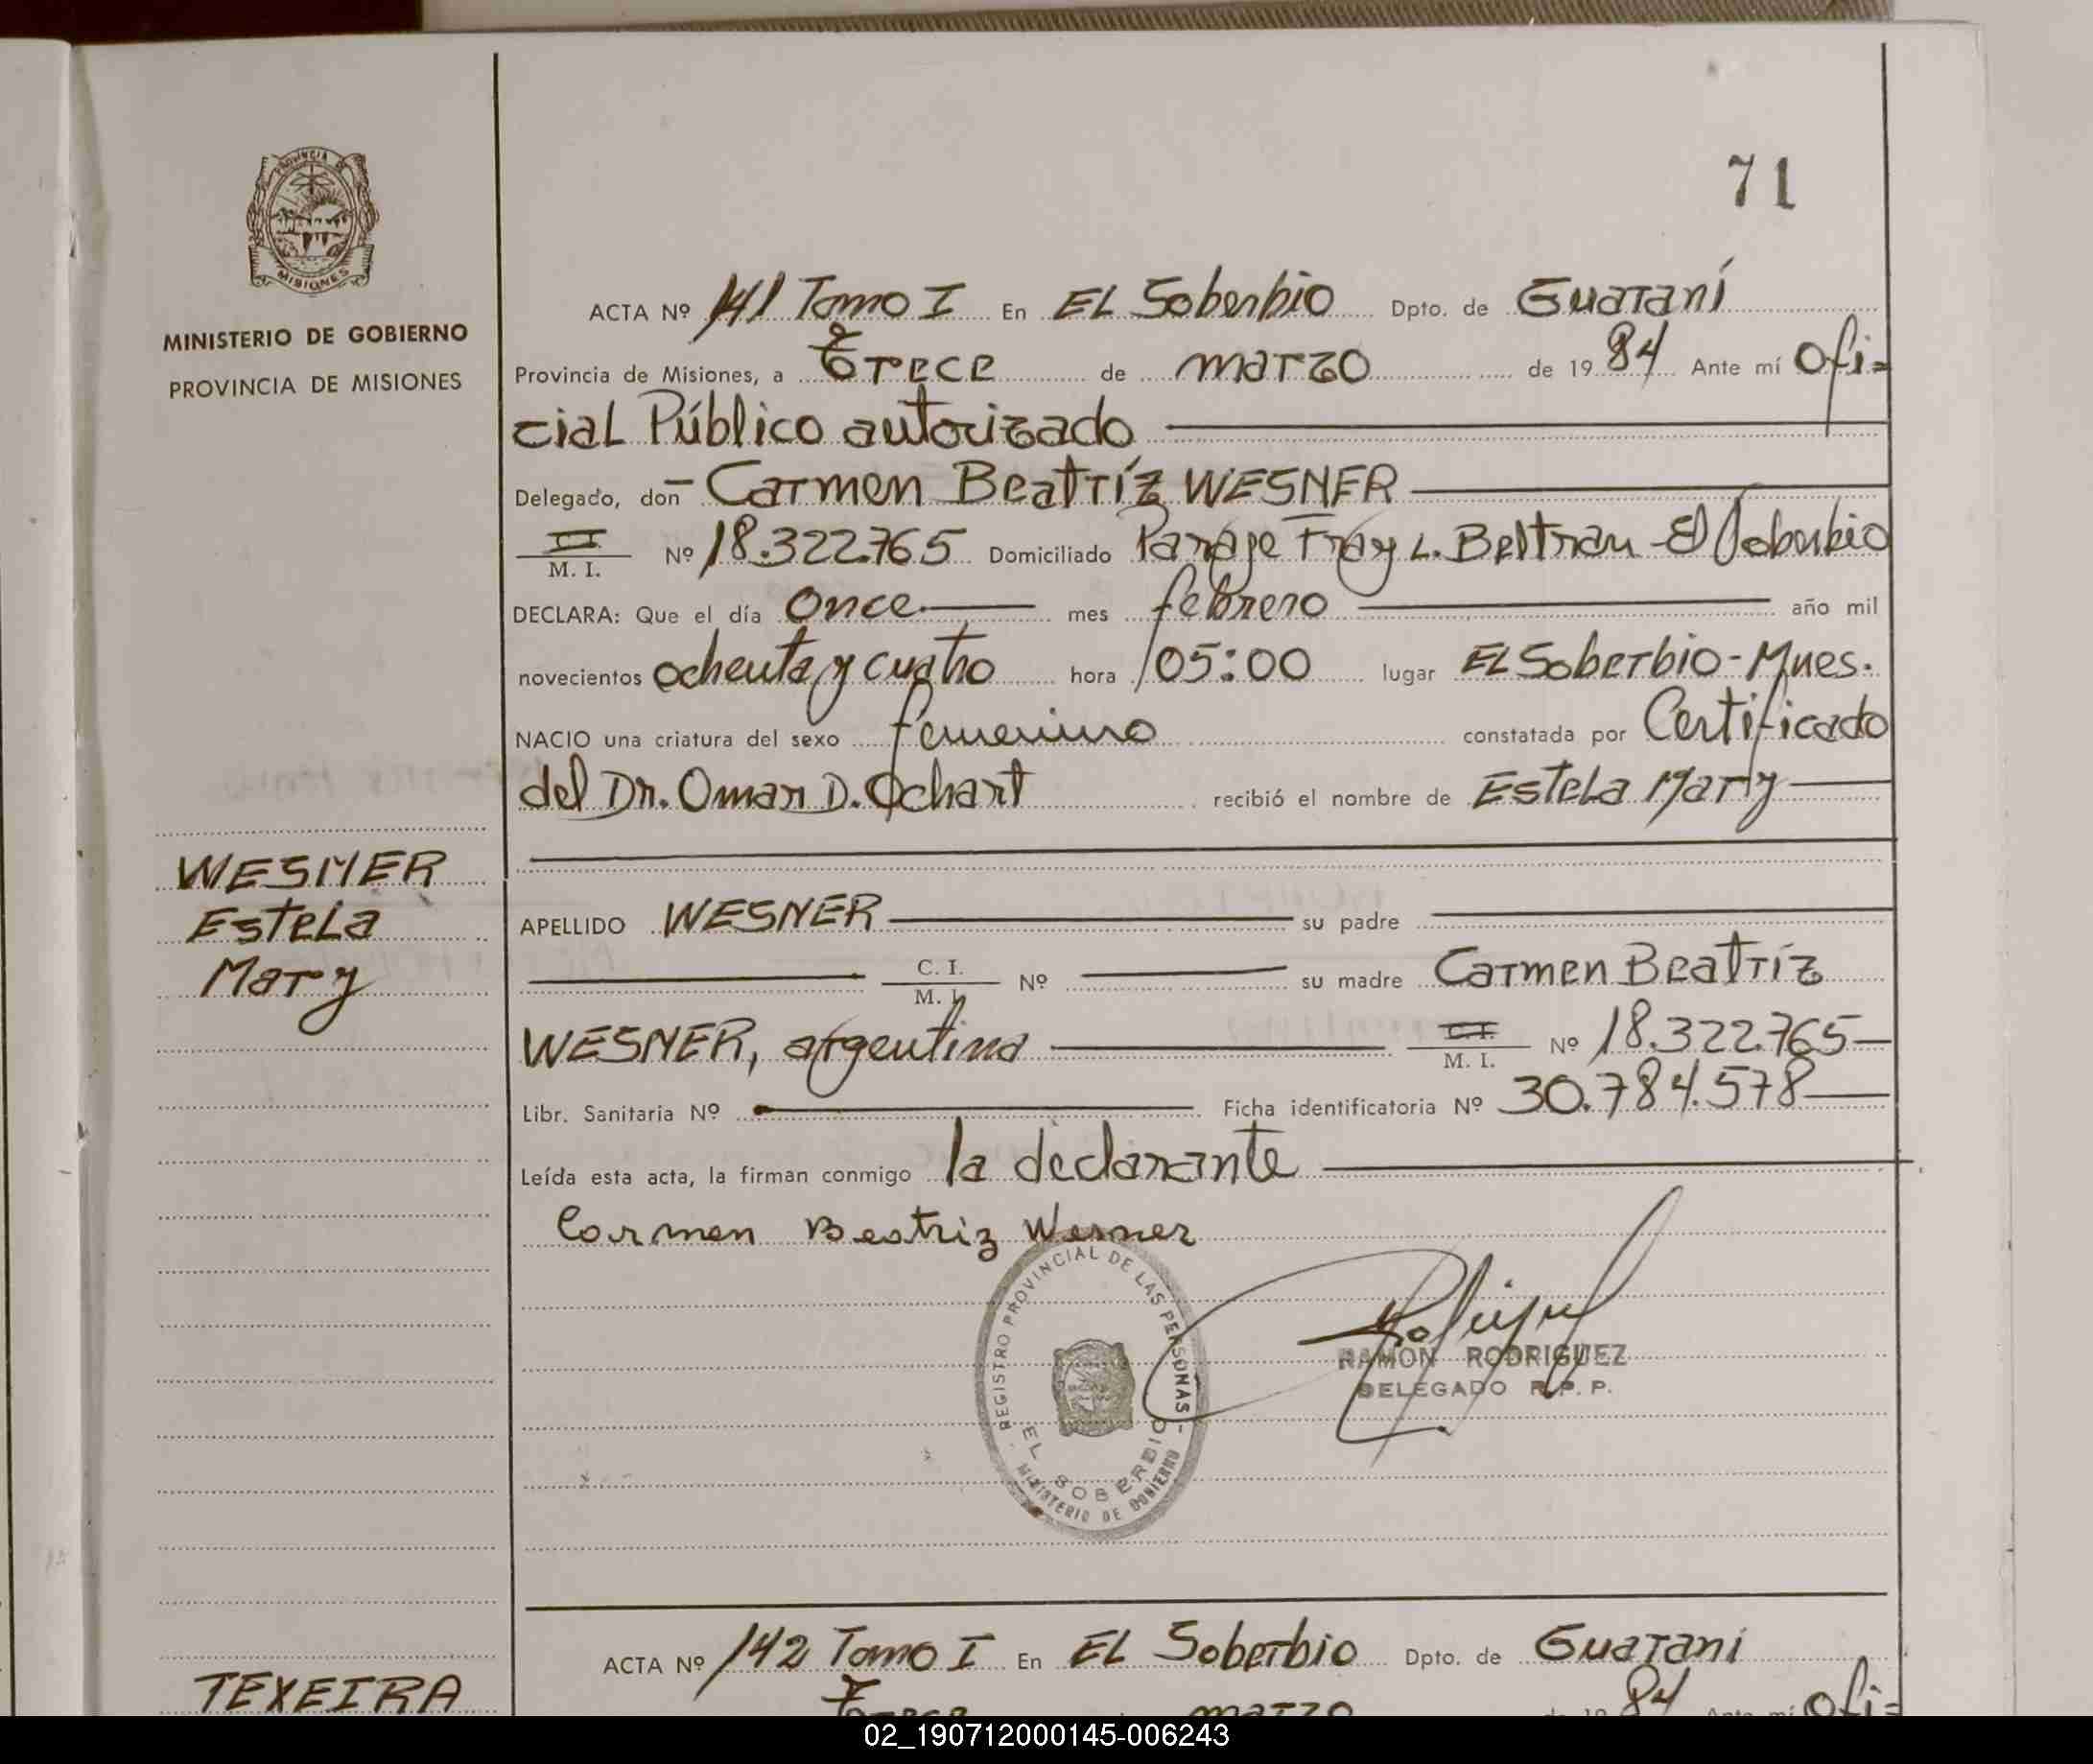 71
PROVINCIA DE
MISIONES
MINISTERIO DE GOBIERNO
PROVINCIA DE MISIONES
ACTA Nº 141 Tomo I En EL Soberbio Dpto. de Guaraní
Provincia de Misiones, a Trece de marzo de 19 84 Ante mí Ofi=
cial Público autorizado
Delegado, don Carmen Beatríz WESNER
M. I. Nº 18.322.765 Domiciliado Paraje Fray L. Beltran El Soberbio
DECLARA: Que el día Once mes febrero año mil
novecientos ochenta y cuatro hora 05:00 lugar EL Soberbio-Mnes.
NACIO una criatura del sexo femenino constatada por Certificado
del Dr. Omar D. Ochart recibió el nombre de Estela Mary
WESNER
Estela
Mary
APELLIDO WESNER su padre
C. I.
M. I. Nº su madre Carmen Beatríz
WESNER, argentina C.I.
M. I. Nº 18.322.765
Libr. Sanitaria Nº Ficha identificatoria Nº 30.784.578
Leída esta acta, la firman conmigo la declarante
Carmen Beatriz Wesner
REGISTRO PROVINCIAL DE LAS PERSONAS - MINISTERIO DE GOBIERNO
EL SOBERBIO
RAMON RODRIGUEZ
DELEGADO R.P.P.
ACTA Nº 142 Tomo I En EL Soberbio Dpto. de Guaraní
TEXEIRA
Trece marzo de 19 84 Ante mí Ofi=
02_190712000145-006243